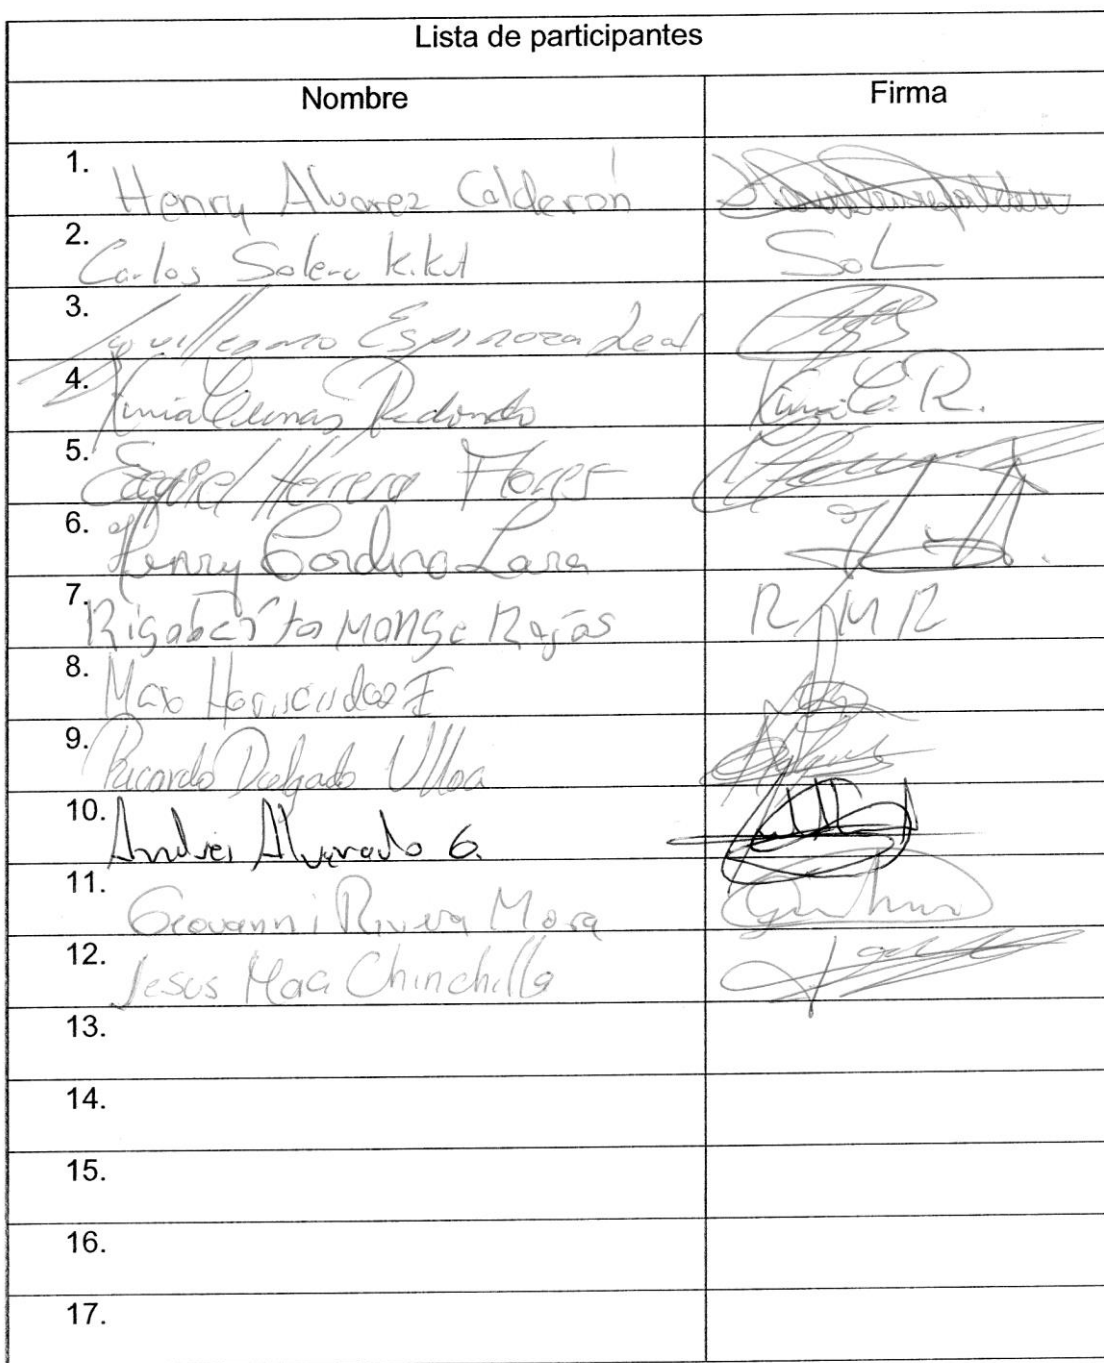 Lista de participantes
Nombre Firma
1. Henry Alvarez Calderón
2. Carlos Solera Kikut Sol
3. Guillermo Espinoza Leal
4. Xinia Redondo Xinia C. R.
5. Ezequiel Herrera Flores
6. Henry Cordero Lara
7. Rigaberto Monge Rojas R M R
8. Max Hernandez
9. Ricardo Delgado Ulloa
10. Andrei Alvarado G.
11. Geovanni Rivera Mora
12. Jesus Chinchilla
13.
14.
15.
16.
17.